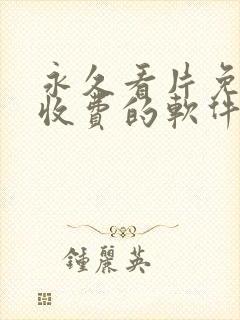 永久看片免
收费的軟件
鍾麗英